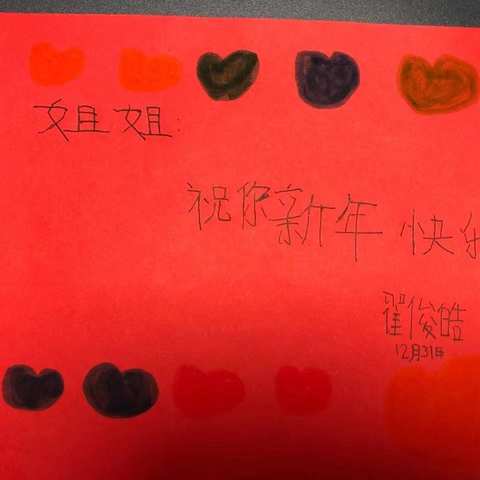 姐姐:
祝你新年快乐
翟俊皓
12月31日